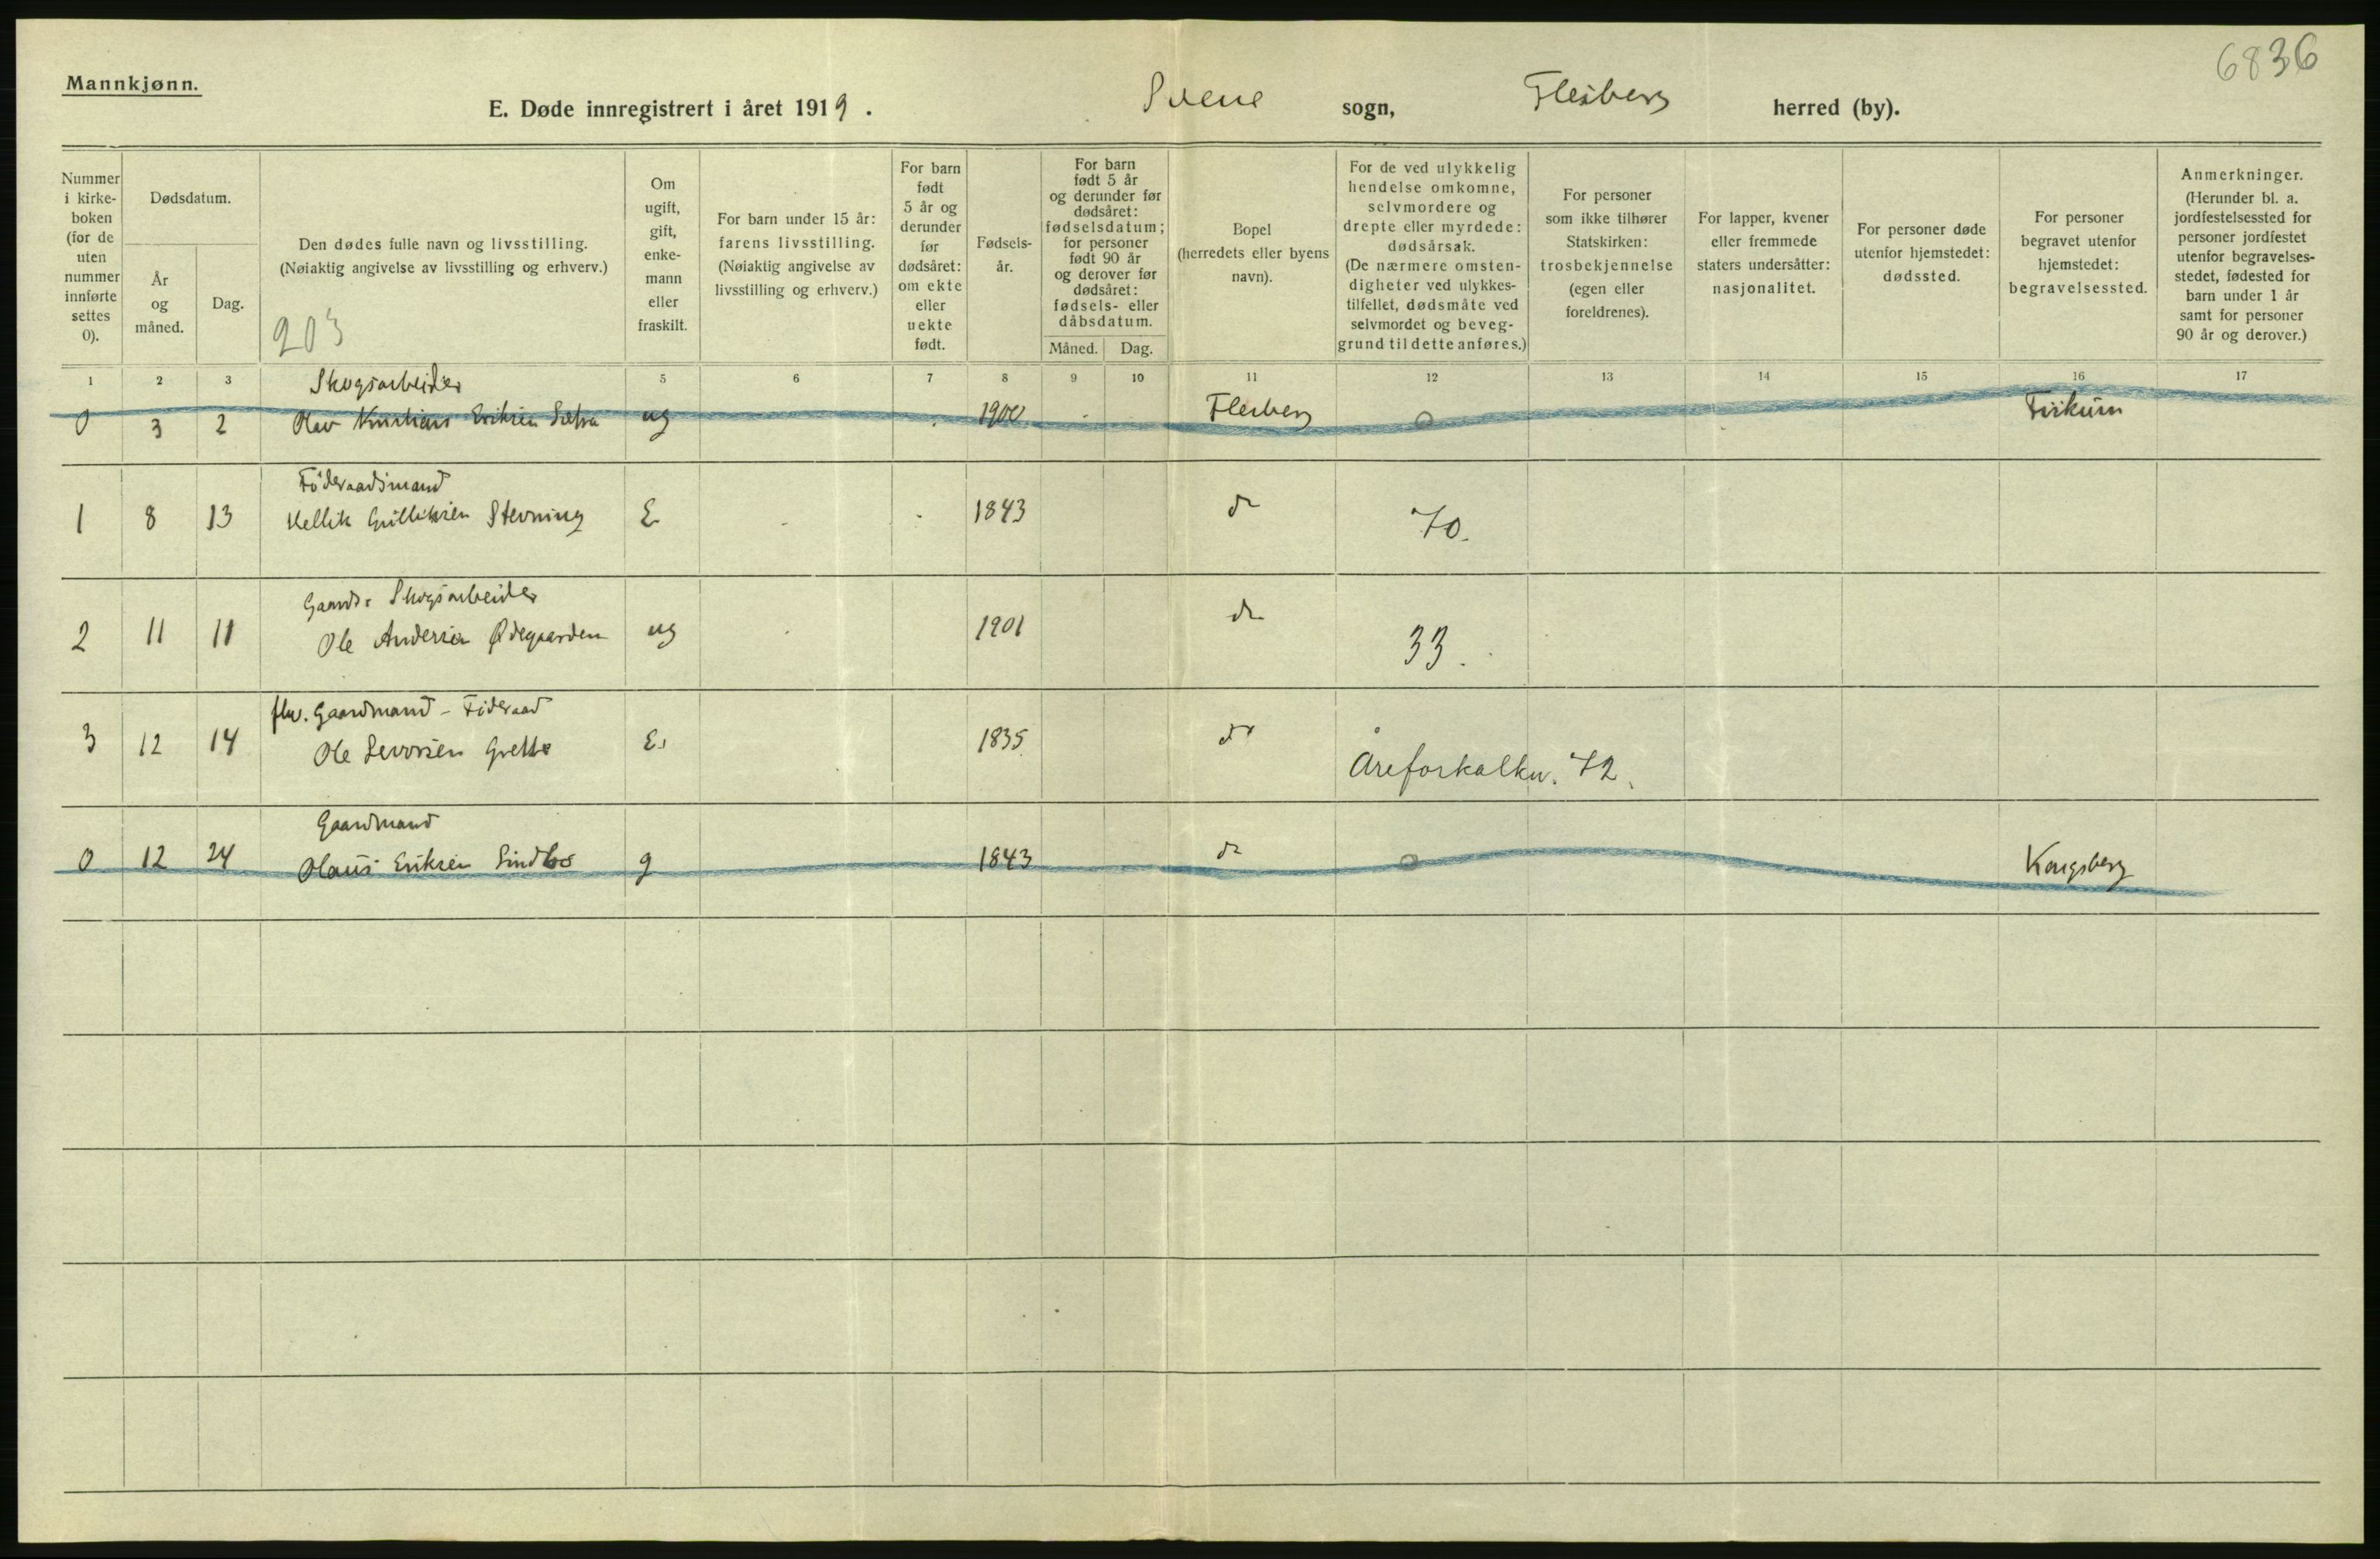 6836
Mannkjønn.
E. Døde innregistrert i året 1919. Svene sogn, Flesberg herred (by).
Nummer i kirke-boken (for de uten nummer innførte settes 0).
Dødsdatum.
År og måned.
Dag.
Den dødes fulle navn og livsstilling.
(Nøiaktig angivelse av livsstilling og erhverv.)
203
Om ugift, gift, enke-mann eller fraskilt.
For barn under 15 år: farens livsstilling. (Nøiaktig angivelse av livsstilling og erhverv.)
For barn født 5 år og derunder før dødsåret: om ekte eller uekte født.
Fødsels-år.
For barn født 5 år og derunder før dødsåret: fødselsdatum; for personer født 90 år og derover før dødsåret: fødsels- eller dåbsdatum.
Måned. Dag.
Bopel (herredets eller byens navn).
For de ved ulykkelig hendelse omkomne, selvmordere og drepte eller myrdede: dødsårsak. (De nærmere omsten-digheter ved ulykkes-tilfellet, dødsmåte ved selvmordet og beveg-grund til dette anføres.)
For personer som ikke tilhører Statskirken: trosbekjennelse (egen eller foreldrenes).
For lapper, kvener eller fremmede staters undersåtter: nasjonalitet.
For personer døde utenfor hjemstedet: dødssted.
For personer begravet utenfor hjemstedet: begravelsessted.
Anmerkninger. (Herunder bl. a. jordfestelsessted for personer jordfestet utenfor begravelses-stedet, fødested for barn under 1 år samt for personer 90 år og derover.)
1 2 3 5 6 7 8 9 10 11 12 13 14 15 16 17
Skogsarbeider
0 3 2 Olav Kristian Eriksen ug 1900 Flesberg 0
Föderaadsmand
1 8 13 Kellik Gulliksen Stevning E 1843 do 70.
Gaards- Skogsarbeider
2 11 11 Ole Andersen Ødegaarden ug 1901 do 33.
flv. Gaardmand - Föderaad
3 12 14 Ole Sevorsen Grette E. 1835 do Åreforkalkn. 72.
Gaardmand
0 12 24 Olaus Eriksen g 1843 do 0 Kongsberg